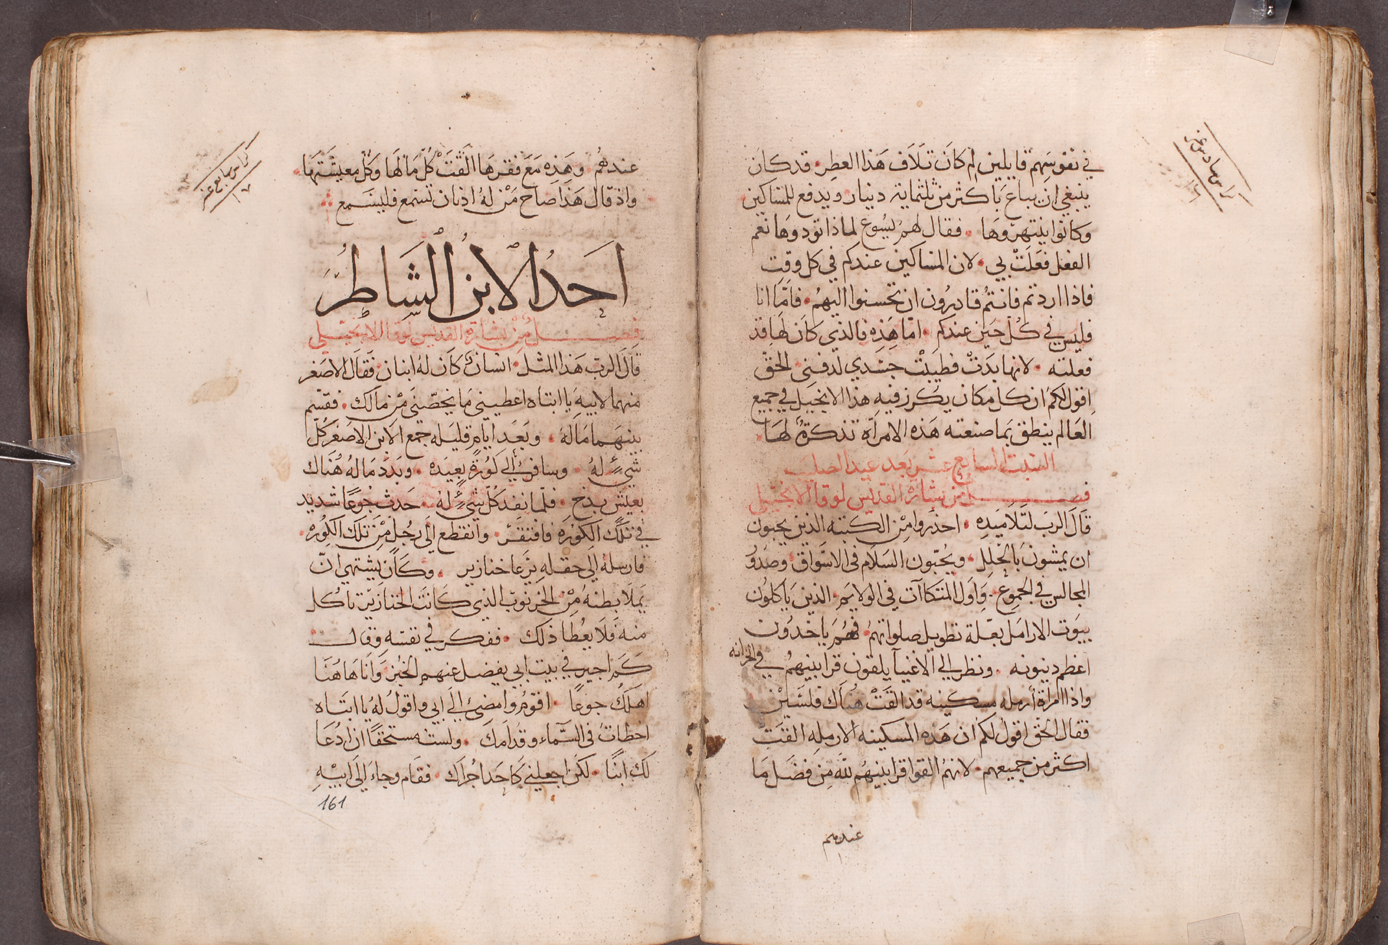 في نفوسهم قايلين لم كان تلاف هذا العطر قد كان
ينبغي ان يباع باكثر من ثلثماية دينار ويدفع للمساكين
وكانوا ينتهروها فقال لهم يسوع لماذا توذوها نعم
الفعل فعلت بي لان المساكين عندكم في كل وقت
فاذا اردتم فانتم قادرون ان تحسنوا اليهم فاما انا
فليس في كل حين عندكم اما هذه فالذي كان لها قد
فعلته لانها بدت فطيبت جسدي لدفني الحق
اقول لكم ان كل مكان يكرز فيه هذا الانجيل في جميع
العالم ينطق بما صنعته هذه الامراة تذكرة لها
السبت السابع عشر بعد عيد الصليب
فصل من بشارة القديس لوقا الانجيلي
قال الرب لتلاميذه احذروا من الكتبه الذين يحبون
ان يمشون بالحلل ويحبون السلام في الاسواق وصدو
المجالس في الجموع واول المتكاآت في الولايم الذين ياكلون
بيوت الارامل بعلة تطويل صلواتهم فهم ياخذون
اعظم دينونه ونظر الي الاغنيآ يلقون قرابينهم في والخزانه
واذا امراة ارمله مسكينه قد القت هناك فلسين
فقال الحق اقول لكم ان هذه المسكينه الارمله القت
اكثر من جميعهم لانهم القوا قرابينهم لله من فضل ما
عندهم
عندهم وهذه مع فقرها القت كل مالها وكل معيشتها
واذ قال هذا صاح من له اذنان تسمع فليسمع
احد الابن الشاطر
فصل من بشارة القديس لوقا الانجيلي
قال الرب هذا المثل انسان كان له ابنان فقال الاصغر
منهما لابيه يا ابتاه اعطيني ما يخصني من مالك فقسم
بينهما ماله وبعد ايام قليله جمع الابن الاصغر كل
شيء له وسافر الى كورة بعيده وبدد ماله هناك
بعيش بذخ فلما نفد كل شيء له حدث جوعا شديد
في تلك الكوره فافتقر وانقطع الى رجل من تلك الكوره
فارسله الى حقله يرعا خنازير وكان يشتهي ان
يملا بطنه من الخرنوب الذي كانت الخنازير تاكل
منه فلا يعطا ذلك ففكر في نفسه وقال
كم اجير في بيت ابي يفضل عنهم الخبز وانا هاهنا
اهلك جوعا اقوم وامضي الى ابي واقول له يا ابتاه
اخطات في السماء وقدامك ولست مستحقا ان ادعا
لك ابنا لكن اجعلني كاحد اجراك فقام وجاء الى ابيه
161